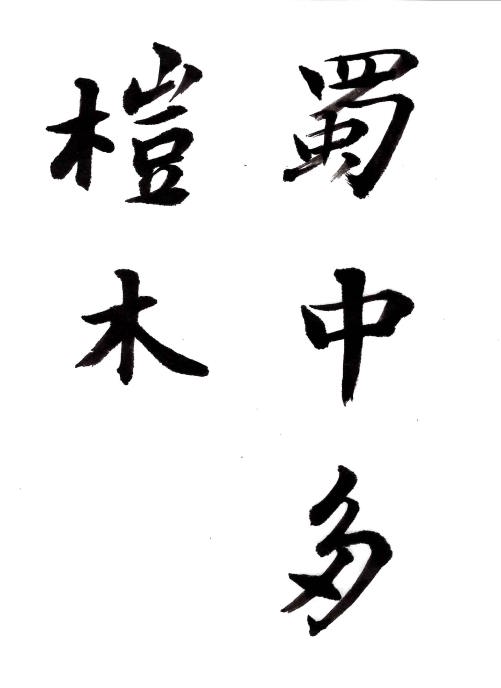 蜀中多
榿木